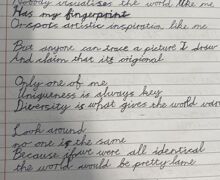 Nobody visualises the world like me
Has my fingerprint
Or spots artistic inspiration like me
But anyone can trace a picture I draw
And claim that its original
Only one of me
Uniqueness is always key
Diversity is what gives the world
Look around
no one is the same
Because if we were all identical
the world would be pretty lame